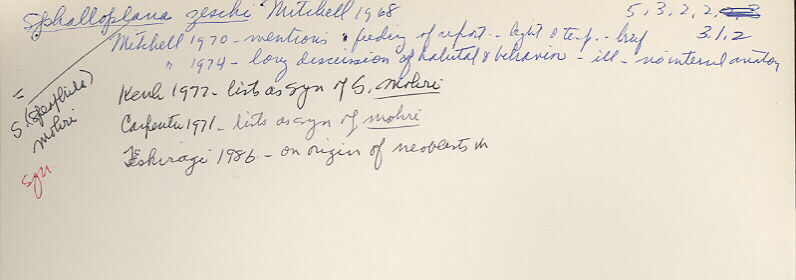 Sphalloplana zeschi Mitchell 1968 5, 3, 2, 2,
Mitchell 1970 - mentions feeding of report - light & temp. - brief 3.1.2
" 1974 - long discussion of habitat & behavior - ill - no internal anatomy
= S. (Speophila) mohri
syn.
Kenk 1977 - lists as syn of S. mohri
Carpenter 1971 - lists as syn of mohri
1986 - on origin of neoblasts in